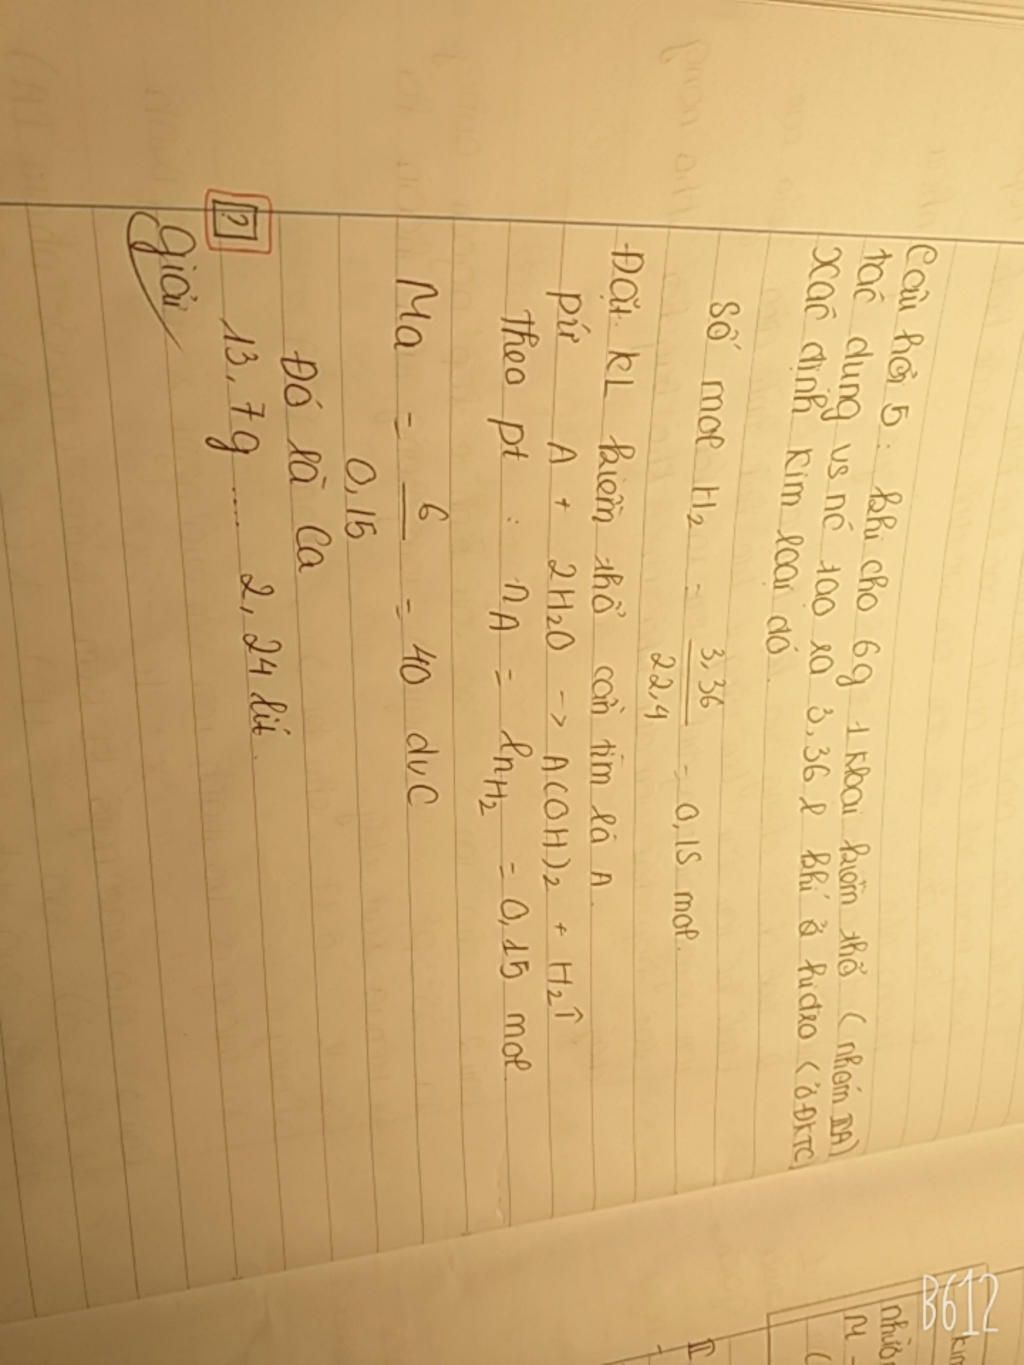 Câu hỏi 5: khi cho 6g 1 kloại kiềm thổ (nhóm IIA)
tác dụng vs nc tạo ra 3,36 l khí ở hidro (ở ĐKTC)
xác định kim loại đó.
Số mol H₂ = 3,36 / 22,4 = 0,15 mol.
Đặt KL kiềm thổ cần tìm là A.
pứ A + 2H₂O -> A(OH)₂ + H₂↑
Theo pt : nA = nH₂ = 0,15 mol
Ma = 6 / 0,15 = 40 đvC
Đó là Ca
? 13,7g .... 2,24 lít.
Giải
B612
II